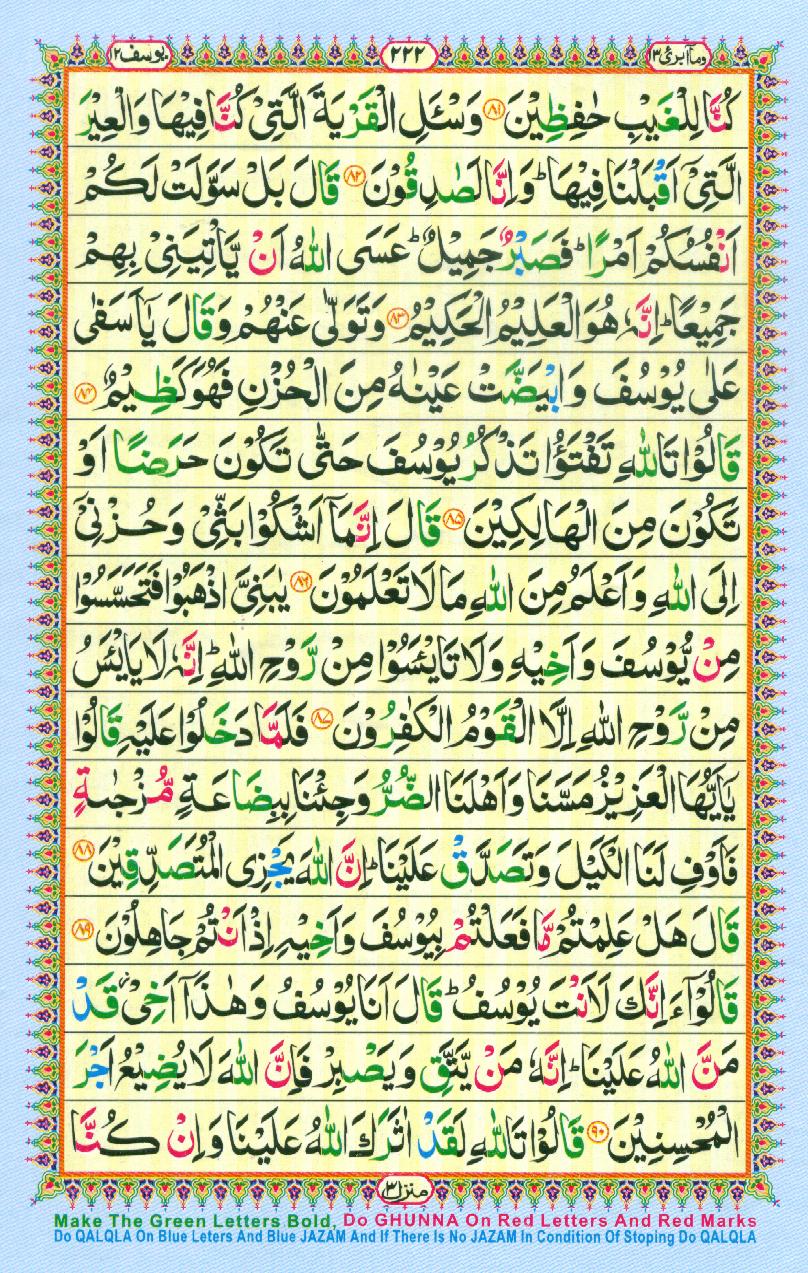 وما ابرئ ۱۳
۲۲۲
يوسف ۱۲
كُنَّا لِلْغَيْبِ حٰفِظِيْنَ ﴿۸۱﴾ وَسْـَٔلِ الْقَرْيَةَ الَّتِىْ كُنَّا فِيْهَا وَالْعِيْرَ
الَّتِىْۤ اَقْبَلْنَا فِيْهَا ؕ وَاِنَّا لَصٰدِقُوْنَ ﴿۸۲﴾ قَالَ بَلْ سَوَّلَتْ لَكُمْ
اَنْفُسُكُمْ اَمْرًا ؕ فَصَبْرٌ جَمِيْلٌ ؕ عَسَى اللّٰهُ اَنْ يَّاْتِيَنِىْ بِهِمْ
جَمِيْعًا ؕ اِنَّهٗ هُوَ الْعَلِيْمُ الْحَكِيْمُ ﴿۸۳﴾ وَتَوَلّٰى عَنْهُمْ وَقَالَ يٰۤاَسَفٰى
عَلٰى يُوْسُفَ وَابْيَضَّتْ عَيْنٰهُ مِنَ الْحُزْنِ فَهُوَ كَظِيْمٌ ﴿۸۴﴾
قَالُوْا تَاللّٰهِ تَفْتَؤُا تَذْكُرُ يُوْسُفَ حَتّٰى تَكُوْنَ حَرَضًا اَوْ
تَكُوْنَ مِنَ الْهَالِكِيْنَ ﴿۸۵﴾ قَالَ اِنَّمَاۤ اَشْكُوْا بَثِّىْ وَحُزْنِىْۤ
اِلَى اللّٰهِ وَاَعْلَمُ مِنَ اللّٰهِ مَا لَا تَعْلَمُوْنَ ﴿۸۶﴾ يٰبَنِىَّ اذْهَبُوْا فَتَحَسَّسُوْا
مِنْ يُّوْسُفَ وَاَخِيْهِ وَلَا تَايْـَٔسُوْا مِنْ رَّوْحِ اللّٰهِ ؕ اِنَّهٗ لَا يَايْـَٔسُ
مِنْ رَّوْحِ اللّٰهِ اِلَّا الْقَوْمُ الْكٰفِرُوْنَ ﴿۸۷﴾ فَلَمَّا دَخَلُوْا عَلَيْهِ قَالُوْا
يٰۤاَيُّهَا الْعَزِيْزُ مَسَّنَا وَاَهْلَنَا الضُّرُّ وَجِئْنَا بِبِضَاعَةٍ مُّزْجٰىةٍ
فَاَوْفِ لَنَا الْكَيْلَ وَتَصَدَّقْ عَلَيْنَا ؕ اِنَّ اللّٰهَ يَجْزِى الْمُتَصَدِّقِيْنَ ﴿۸۸﴾
قَالَ هَلْ عَلِمْتُمْ مَّا فَعَلْتُمْ بِيُوْسُفَ وَاَخِيْهِ اِذْ اَنْتُمْ جَاهِلُوْنَ ﴿۸۹﴾
قَالُوْۤا ءَاِنَّكَ لَاَنْتَ يُوْسُفُ ؕ قَالَ اَنَا يُوْسُفُ وَهٰذَاۤ اَخِىْ ؗ قَدْ
مَنَّ اللّٰهُ عَلَيْنَا ؕ اِنَّهٗ مَنْ يَّتَّقِ وَيَصْبِرْ فَاِنَّ اللّٰهَ لَا يُضِيْعُ اَجْرَ
الْمُحْسِنِيْنَ ﴿۹۰﴾ قَالُوْا تَاللّٰهِ لَقَدْ اٰثَرَكَ اللّٰهُ عَلَيْنَا وَاِنْ كُنَّا
منزل ۳
Make The Green Letters Bold, Do GHUNNA On Red Letters And Red Marks
Do QALQLA On Blue Leters And Blue JAZAM And If There Is No JAZAM In Condition Of Stoping Do QALQLA